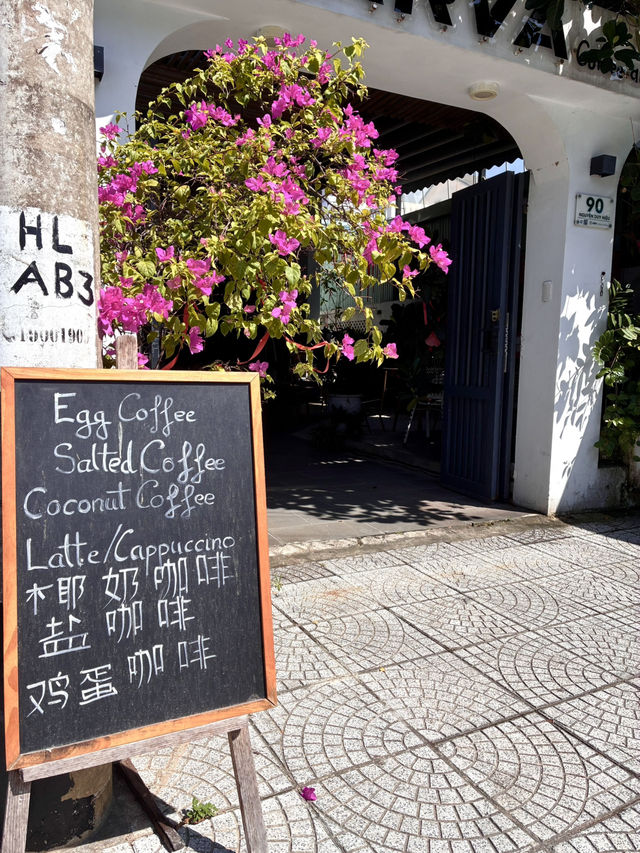 HL
AB3
90
NGUYỄN DUY HIỆU
Egg Coffee
Salted Coffee
Coconut Coffee
Latte/Cappuccino
椰奶咖啡
盐咖啡
鸡蛋咖啡